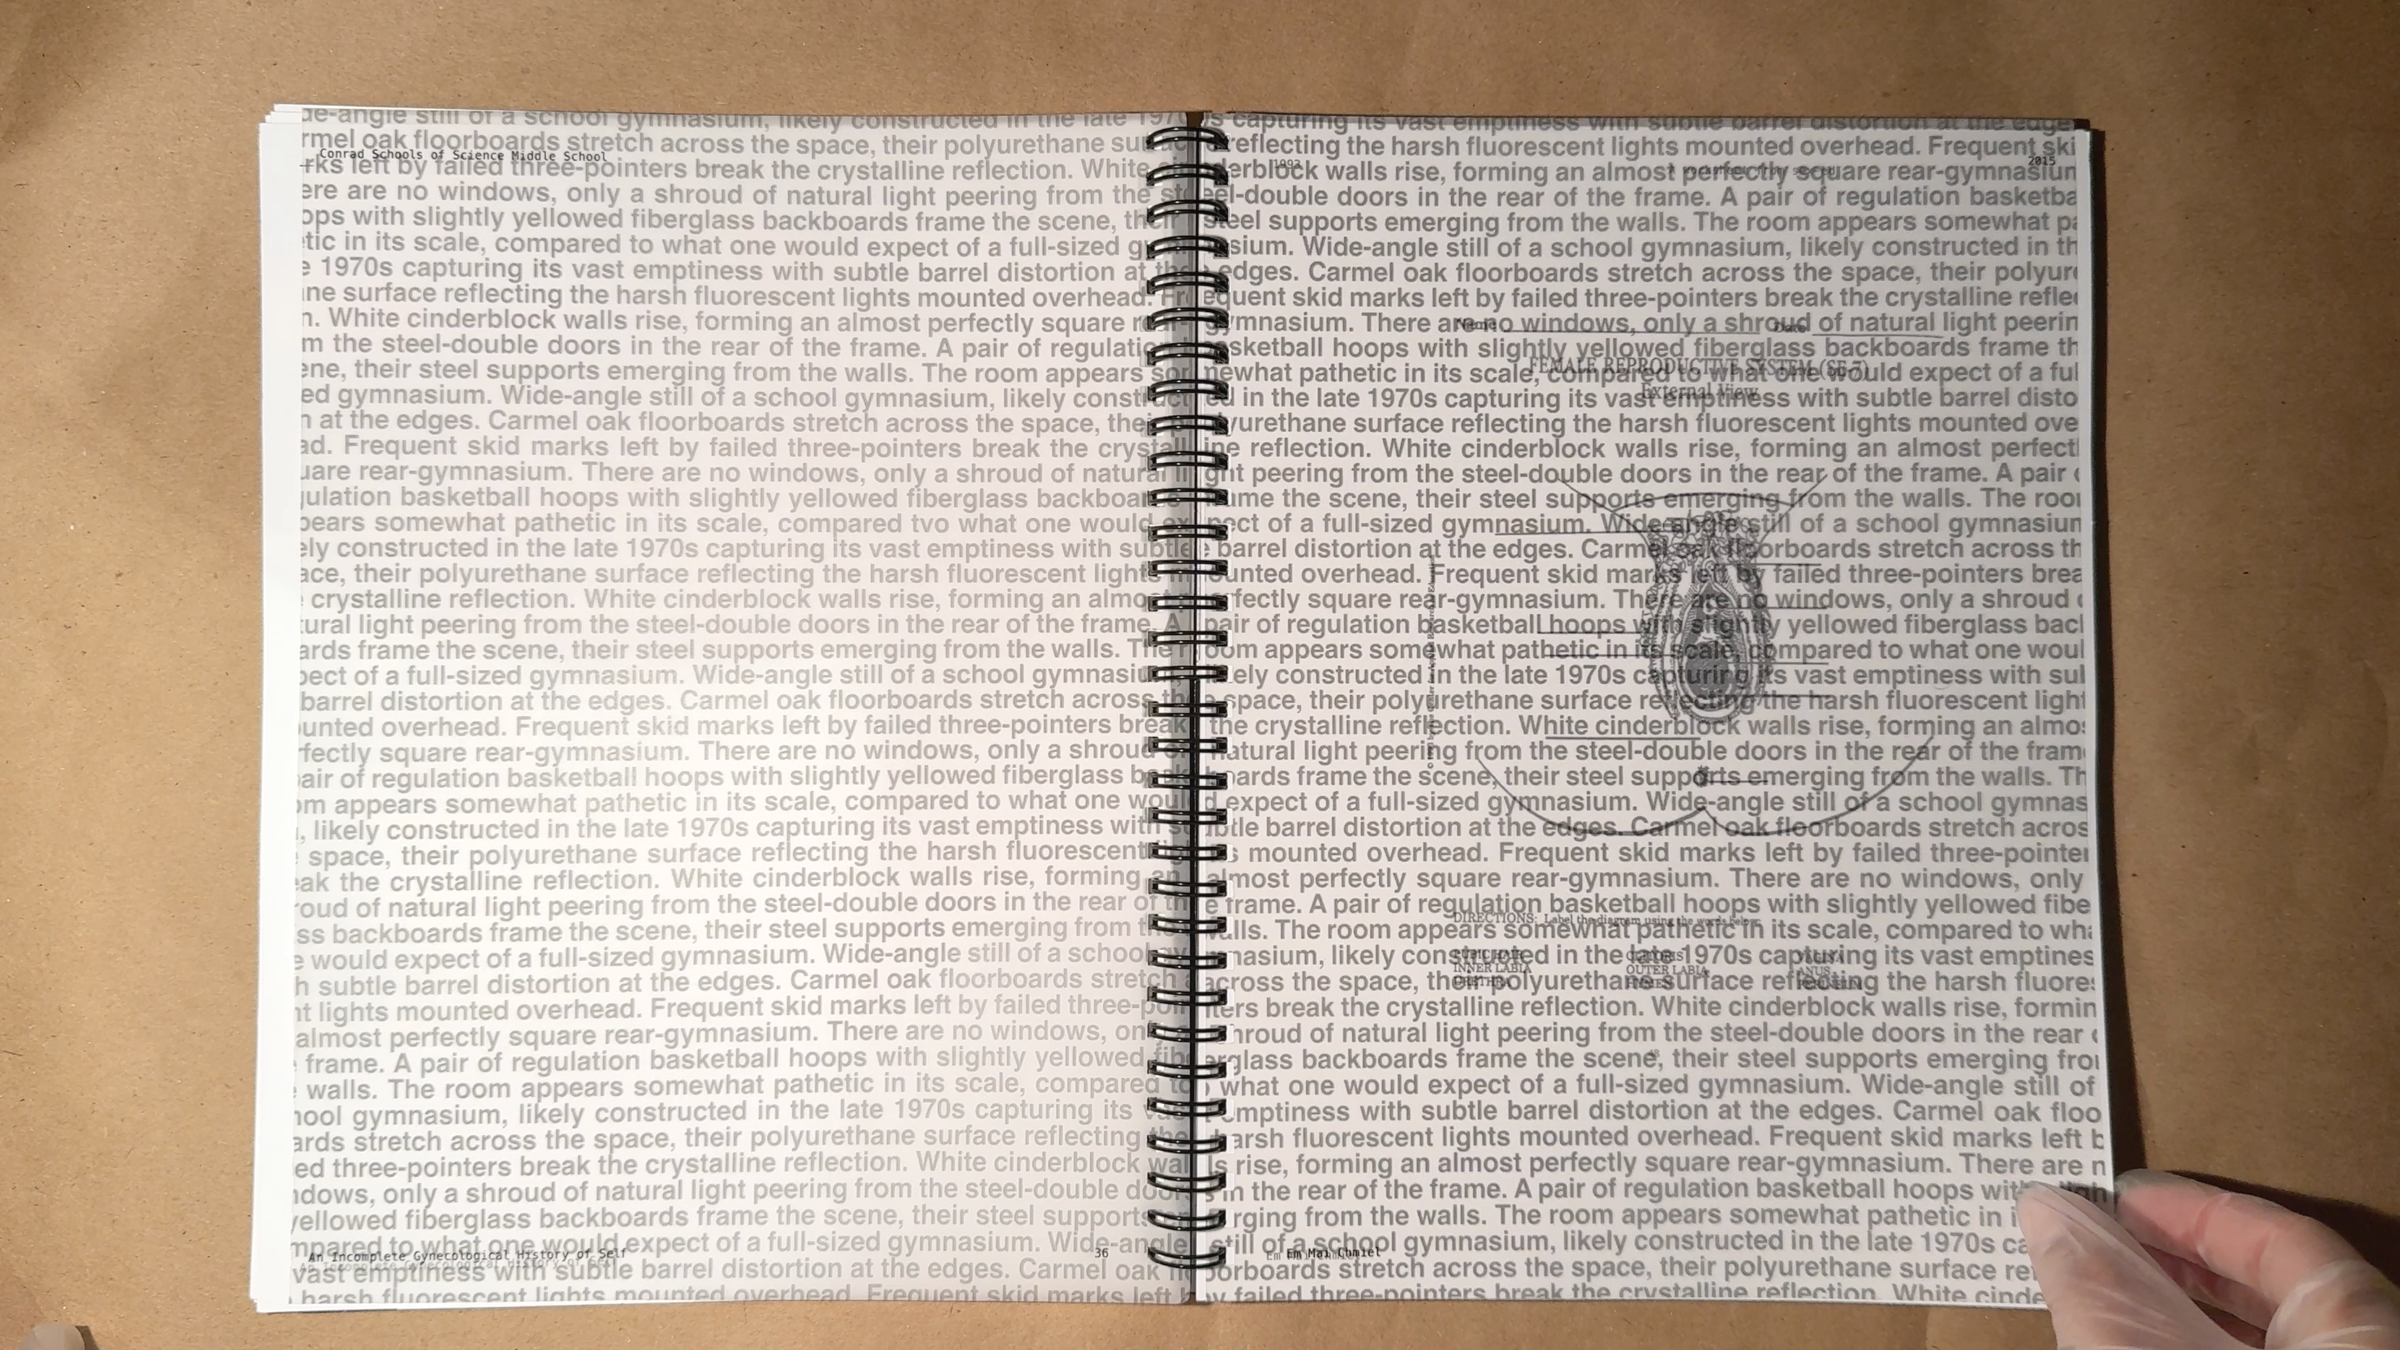 de-angle still of a school gymnasium, likely constructed in the late 197
rmel oak floorboards stretch across the space, their polyurethane su
Conrad Schools of Science Middle School
rks left by failed three-pointers break the crystalline reflection. White
ere are no windows, only a shroud of natural light peering from the st
ops with slightly yellowed fiberglass backboards frame the scene, th
tic in its scale, compared to what one would expect of a full-sized g
e 1970s capturing its vast emptiness with subtle barrel distortion at the
ne surface reflecting the harsh fluorescent lights mounted overhead. Fr
n. White cinderblock walls rise, forming an almost perfectly square r
m the steel-double doors in the rear of the frame. A pair of regulati
ene, their steel supports emerging from the walls. The room appears so
ed gymnasium. Wide-angle still of a school gymnasium, likely const
n at the edges. Carmel oak floorboards stretch across the space, the
ad. Frequent skid marks left by failed three-pointers break the crys
uare rear-gymnasium. There are no windows, only a shroud of natur
gulation basketball hoops with slightly yellowed fiberglass backboar
pears somewhat pathetic in its scale, compared tvo what one would ex
ely constructed in the late 1970s capturing its vast emptiness with subtle
ace, their polyurethane surface reflecting the harsh fluorescent light
crystalline reflection. White cinderblock walls rise, forming an almo
tural light peering from the steel-double doors in the rear of the frame. A
ards frame the scene, their steel supports emerging from the walls. The
pect of a full-sized gymnasium. Wide-angle still of a school gymnasiu
barrel distortion at the edges. Carmel oak floorboards stretch across th
unted overhead. Frequent skid marks left by failed three-pointers break
rfectly square rear-gymnasium. There are no windows, only a shrou
air of regulation basketball hoops with slightly yellowed fiberglass b
om appears somewhat pathetic in its scale, compared to what one woul
, likely constructed in the late 1970s capturing its vast emptiness with s
space, their polyurethane surface reflecting the harsh fluorescent
eak the crystalline reflection. White cinderblock walls rise, forming an
roud of natural light peering from the steel-double doors in the rear of th
ss backboards frame the scene, their steel supports emerging from t
e would expect of a full-sized gymnasium. Wide-angle still of a school
h subtle barrel distortion at the edges. Carmel oak floorboards stretch
nt lights mounted overhead. Frequent skid marks left by failed three-poin
almost perfectly square rear-gymnasium. There are no windows, on
frame. A pair of regulation basketball hoops with slightly yellowed fibe
walls. The room appears somewhat pathetic in its scale, compared to
hool gymnasium, likely constructed in the late 1970s capturing its
ards stretch across the space, their polyurethane surface reflecting the
ed three-pointers break the crystalline reflection. White cinderblock wa
ndows, only a shroud of natural light peering from the steel-double doo
yellowed fiberglass backboards frame the scene, their steel supports
mpared to what one would expect of a full-sized gymnasium. Wide-angle
An Incomplete Gynecological History of Self
36
vast emptiness with subtle barrel distortion at the edges. Carmel oak fl
harsh fluorescent lights mounted overhead. Frequent skid marks left b
s capturing its vast emptiness with subtle barrel distortion at the edges
reflecting the harsh fluorescent lights mounted overhead. Frequent ski
1993
2015
derblock walls rise, forming an almost perfectly square rear-gymnasium
el-double doors in the rear of the frame. A pair of regulation basketba
steel supports emerging from the walls. The room appears somewhat pa
sium. Wide-angle still of a school gymnasium, likely constructed in th
edges. Carmel oak floorboards stretch across the space, their polyure
equent skid marks left by failed three-pointers break the crystalline refle
gymnasium. There are no windows, only a shroud of natural light peerin
Name
Date
sketball hoops with slightly yellowed fiberglass backboards frame th
FEMALE REPRODUCTIVE SYSTEM (SE-7)
newhat pathetic in its scale, compared to what one would expect of a ful
External View
ed in the late 1970s capturing its vast emptiness with subtle barrel disto
yurethane surface reflecting the harsh fluorescent lights mounted ove
ine reflection. White cinderblock walls rise, forming an almost perfectl
ght peering from the steel-double doors in the rear of the frame. A pair o
ame the scene, their steel supports emerging from the walls. The roo
pect of a full-sized gymnasium. Wide-angle still of a school gymnasium
barrel distortion at the edges. Carmel oak floorboards stretch across th
ounted overhead. Frequent skid marks left by failed three-pointers brea
rfectly square rear-gymnasium. There are no windows, only a shroud o
pair of regulation basketball hoops with slightly yellowed fiberglass bac
oom appears somewhat pathetic in its scale, compared to what one woul
kely constructed in the late 1970s capturing its vast emptiness with su
space, their polyurethane surface reflecting the harsh fluorescent light
the crystalline reflection. White cinderblock walls rise, forming an almos
natural light peering from the steel-double doors in the rear of the fram
oards frame the scene, their steel supports emerging from the walls. Th
d expect of a full-sized gymnasium. Wide-angle still of a school gymnas
btle barrel distortion at the edges. Carmel oak floorboards stretch acros
s mounted overhead. Frequent skid marks left by failed three-pointe
almost perfectly square rear-gymnasium. There are no windows, only
e frame. A pair of regulation basketball hoops with slightly yellowed fibe
DIRECTIONS: Label the diagram using the words below.
alls. The room appears somewhat pathetic in its scale, compared to wha
nasium, likely constructed in the late 1970s capturing its vast emptines
INNER LABIA
OUTER LABIA
ANUS
across the space, their polyurethane surface reflecting the harsh fluores
URETHRA
nters break the crystalline reflection. White cinderblock walls rise, formin
hroud of natural light peering from the steel-double doors in the rear o
erglass backboards frame the scene, their steel supports emerging from
what one would expect of a full-sized gymnasium. Wide-angle still of
emptiness with subtle barrel distortion at the edges. Carmel oak floo
arsh fluorescent lights mounted overhead. Frequent skid marks left b
ls rise, forming an almost perfectly square rear-gymnasium. There are n
s in the rear of the frame. A pair of regulation basketball hoops with
rging from the walls. The room appears somewhat pathetic in i
still of a school gymnasium, likely constructed in the late 1970s ca
Em Mai Chmiel
oorboards stretch across the space, their polyurethane surface re
by failed three-pointers break the crystalline reflection. White cinde